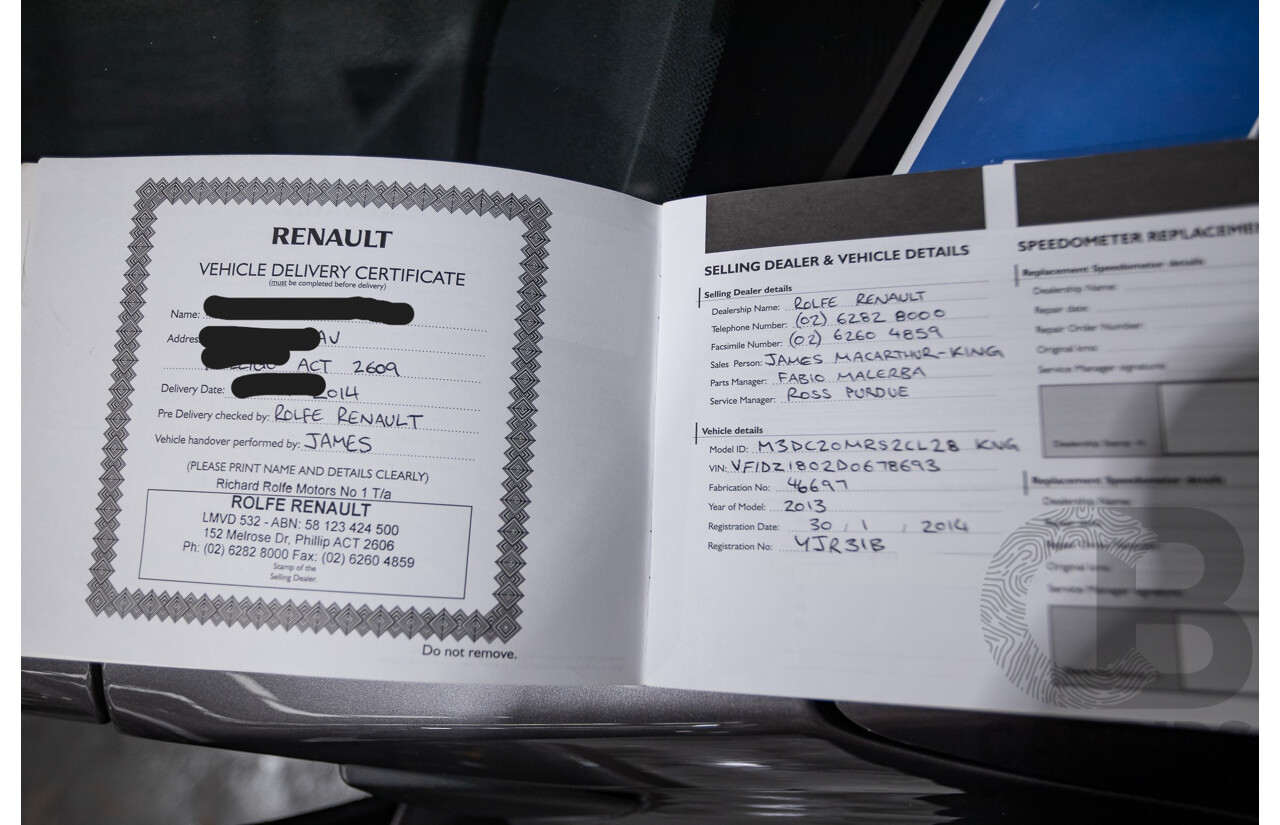 RENAULT
VEHICLE DELIVERY CERTIFICATE
(must be completed before delivery)
Name:
Address AV
ACT 2609
Delivery Date: 2014
Pre Delivery checked by: ROLFE RENAULT
Vehicle handover performed by: JAMES
(PLEASE PRINT NAME AND DETAILS CLEARLY)
Richard Rolfe Motors No 1 T/a
ROLFE RENAULT
LMVD 532 - ABN: 58 123 424 500
152 Melrose Dr, Phillip ACT 2606
Ph: (02) 6282 8000 Fax: (02) 6260 4859
Stamp of the
Selling Dealer.
Do not remove.
SELLING DEALER & VEHICLE DETAILS
Selling Dealer details
Dealership Name: ROLFE RENAULT
Telephone Number: (02) 6282 8000
Facsimile Number: (02) 6260 4859
Sales Person: JAMES MACARTHUR-KING
Parts Manager: FABIO MALERBA
Service Manager: ROSS PURDUE
Vehicle details
Model ID: M3DC20MRS2CL28 KNG
VIN: VF1DZ1802D0678693
Fabrication No: 46697
Year of Model: 2013
Registration Date: 30 / 1 / 2014
Registration No: YJR31B
SPEEDOMETER REPLACEMEN
Replacement Speedometer details
Dealership Name:
Repair date:
Repair Order Number:
Original kms:
Service Manager signature:
Replacement Speedometer details
Dealership Name:
Original kms:
Service Manager signature:
CB